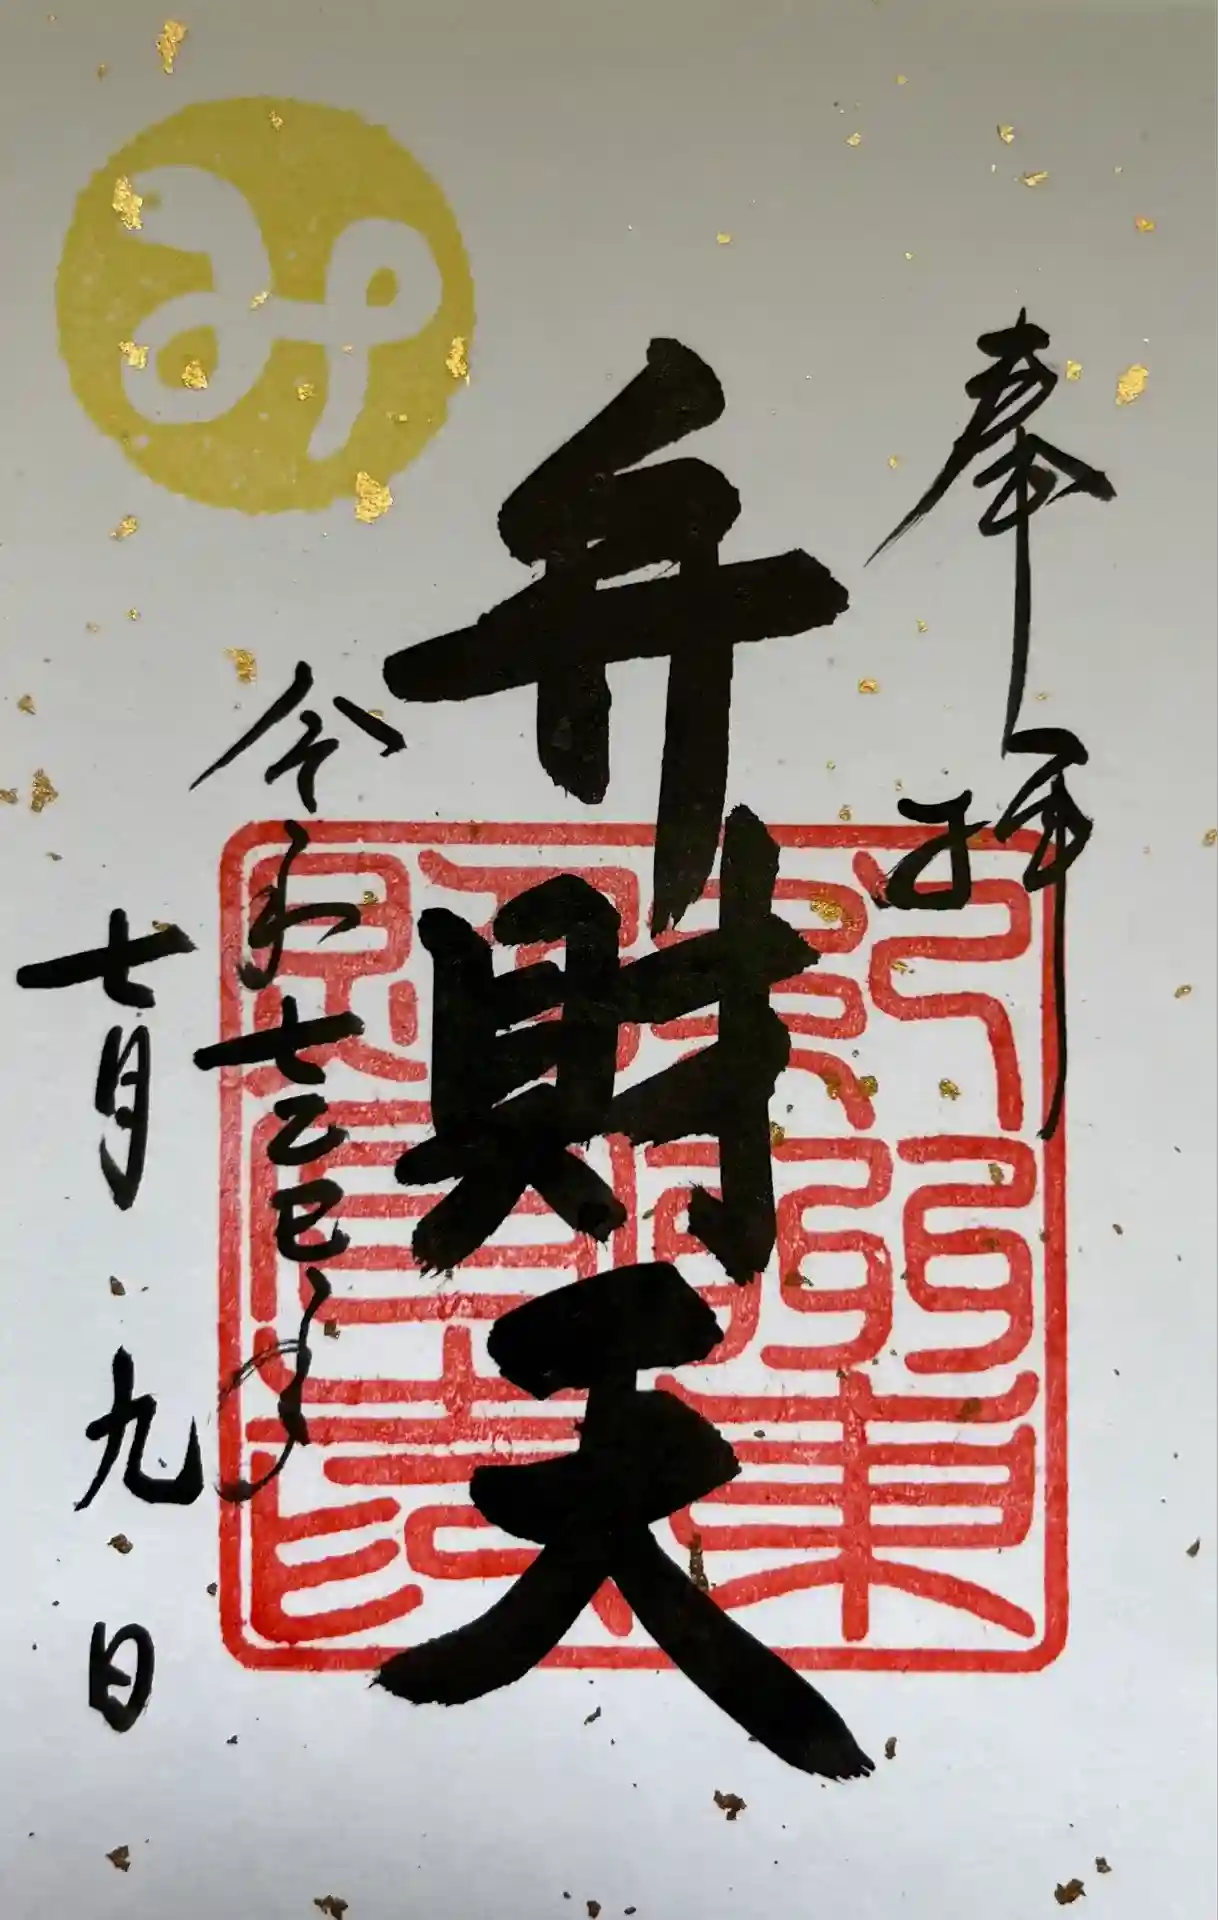 奉拝
弁財天
令和七乙巳年
七月九日